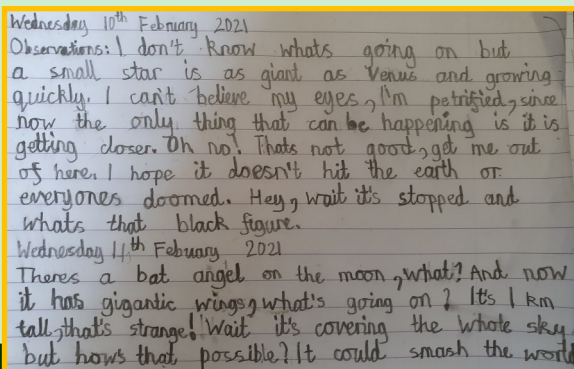 Wednesday 10th February 2021
Observations: I don't know whats going on but
a small star is as giant as Venus and growing
quickly. I can't believe my eyes, I'm petrified, since
now the only thing that can be happening is it is
getting closer. Oh no! Thats not good, get me out
of here. I hope it doesn't hit the earth or
everyones doomed. Hey, wait it's stopped and
whats that black figure.
Wednesday 11th Febuary 2021
Theres a bat angel on the moon, what? And now
it has gigantic wings, what's going on? It's 1 km
tall, that's strange! Wait it's covering the whole sky
but hows that possible? It could smash the world